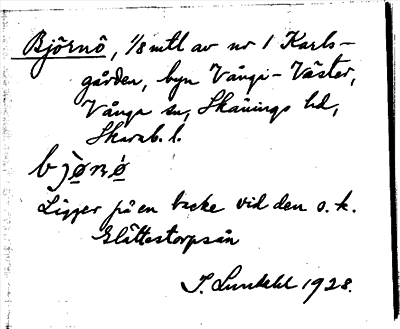 Björnö, 1/8 mtl av nr 1 Karls-
gården, byn Vånga-Väster,
Vånga sn, Skånings hd,
Skarab. l.
bjønǿ
Ligger på en backe vid den s. k.
Slättestorpsån
J. Lundahl 1928.